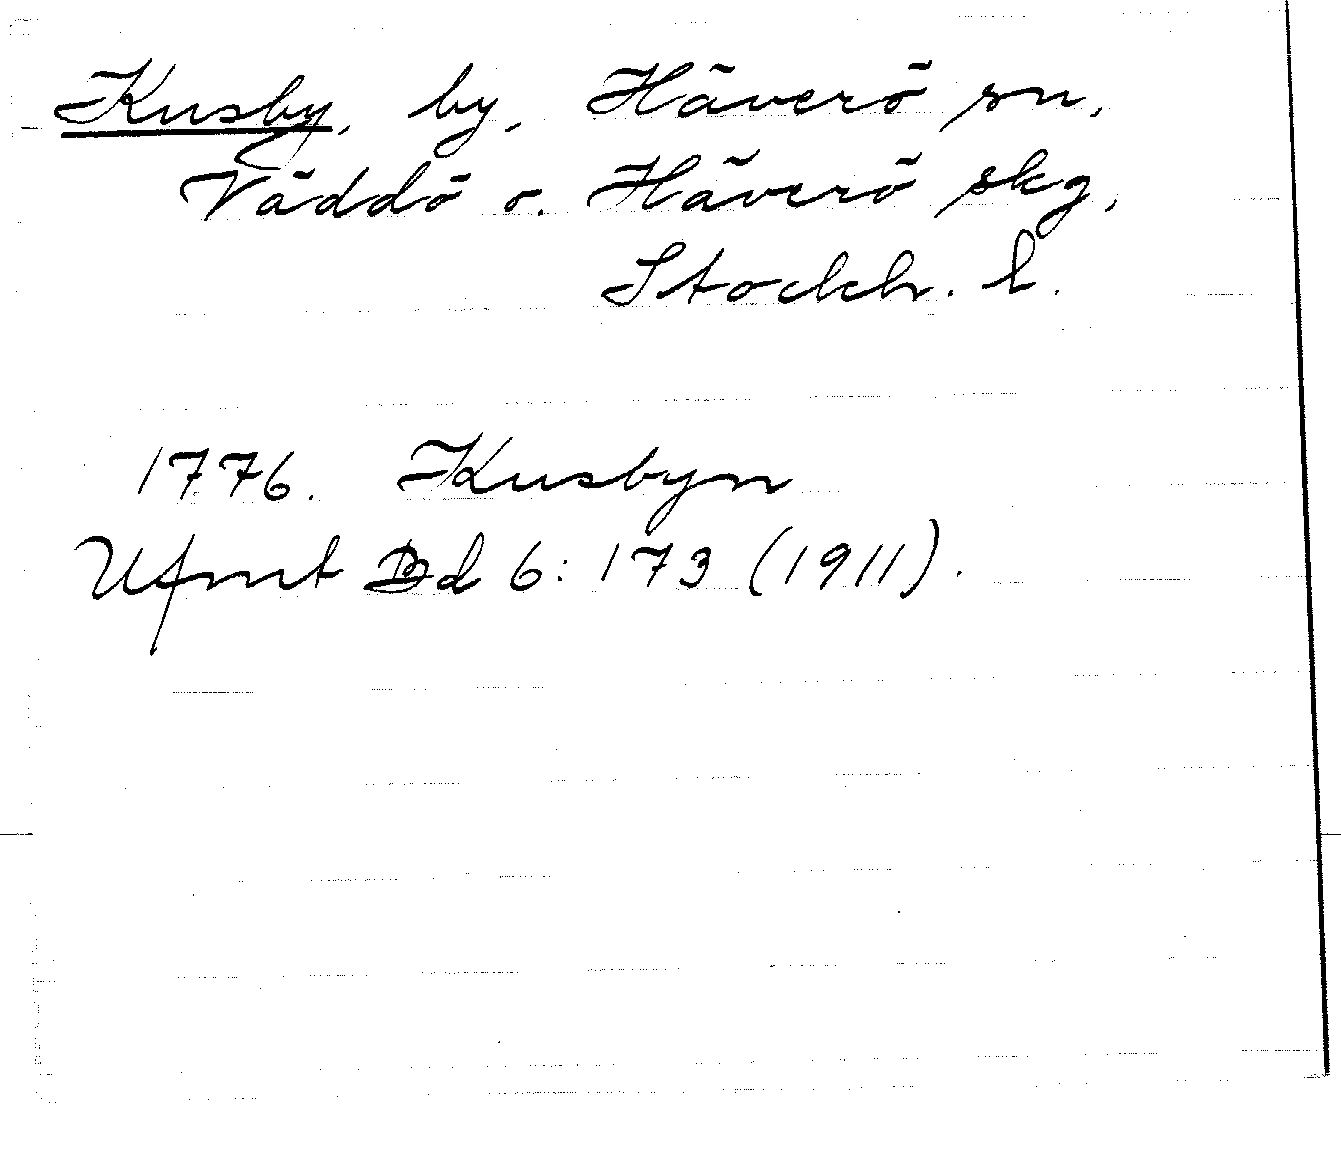 Kusby, by, Häverö sn,
Väddö o. Häverö skg,
Stockh. l.
1776. Kusbyn
Ufmt Bd 6: 173 (1911).